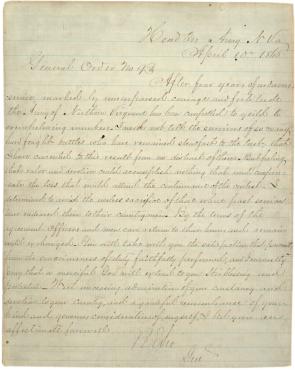 Head Qrs Army N. Va
April 10th 1865
General Order No
After four years of arduous
service marked by unsurpassed courage and fortitude
the Army of Northern Virginia has been compelled to yield to
overwhelming numbers. I need not tell the survivors of so many
hard fought battles who have remained steadfast to the last that
I have consented to this result from no distrust of them. But feeling
that valor and devotion could accomplish nothing that could compen-
sate the loss that would attend the continuance of the contest, I
determined to avoid the useless sacrifice of those whose past services
have endeared them to their countrymen. By the terms of the
agreement Officers and men can return to their homes and remain
until exchanged. You will take with you the satisfaction that proceeds
from the consciousness of duty faithfully performed, and I earnestly
pray that a merciful God will extend to you His blessing and
protection. With increasing admiration of your constancy and
devotion to your country, and a grateful remembrance of your
kind and generous consideration of myself, I bid you an
affectionate farewell
R E Lee
Genl